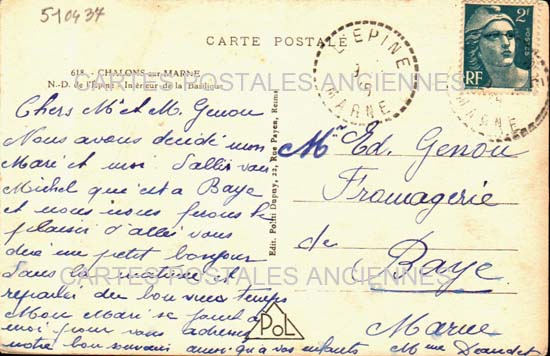 510437
CARTE POSTALE
618. - CHALONS-sur-MARNE
N.-D. de l'Épine - Intérieur de la Basilique
L'EPINE
MARNE
2F
RF
POSTES
MARNE
CARTES POSTALES ANCIENNES
Chers Mr et M. Genou
Nous avons décidé mon
Mari et moi d'aller voir
Michel qui est a Baye
et nous nous ferons le
plaisir d'aller vous
dire un petit bonjour
dans la matinée et
reparler du bon vieux temps
Mon Mari se joint à
moi pour vous adresser
notre bon souvenir ainsi qu'à vos enfants
Mme Daudet
Edit. Poitti Dupuy, 22, Rue Payen, Reims
Mr Ed. Genou
Fromagerie
de
Baye
Marne
CARTES POSTALES ANCIENNES
PoL